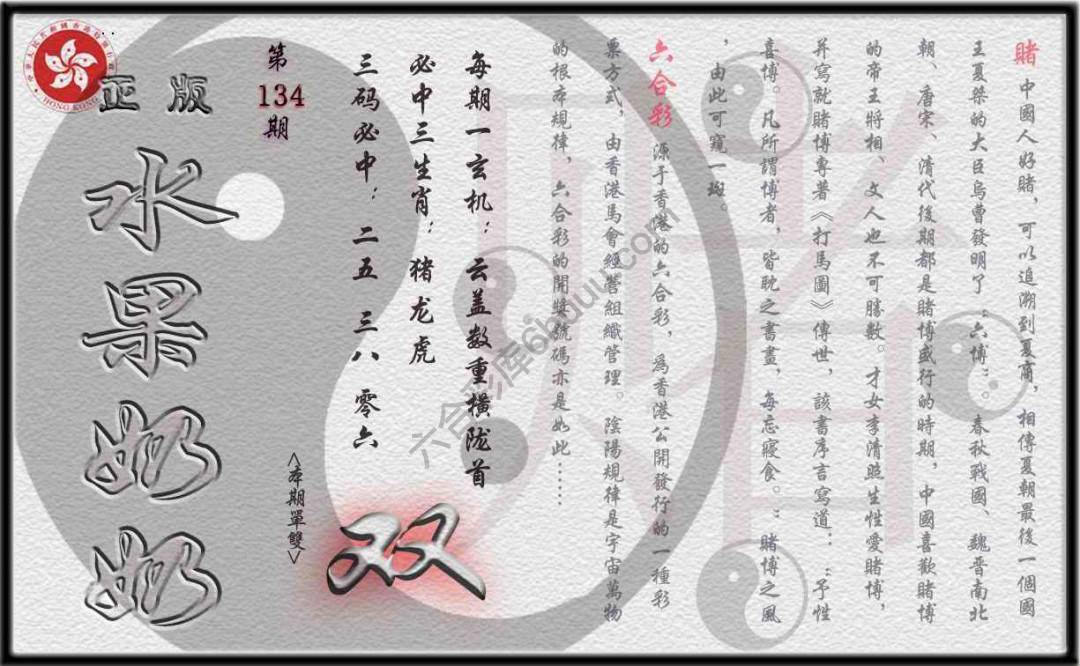 賭 中國人好賭，可以追溯到夏商，相傳夏朝最後一個國
王夏桀的大臣烏曹發明了“六博”。春秋戰國、魏晉南北
朝、唐宋、清代後期都是賭博盛行的時期，中國喜歡賭博
的帝王將相、文人也不可勝數。才女李清照生性愛賭博，
并寫就賭博專著《打馬圖》傳世，該書序言寫道：“予性
喜博。凡所謂博者，皆耽之晝晝，每忘寢食。”賭博之風
，由此可窺一斑。
六合彩 源于香港的六合彩，為香港公開發行的一種彩
票方式，由香港馬會經營組織管理。陰陽規律是宇宙萬物
的根本規律，六合彩的開獎號碼亦是如此……
每期一玄机：云盖数重横陇首
必中三生肖：猪龙虎
三码必中：二五 三八 零六
双
<本期單雙>
第
134
期
正版
水果奶奶
HONG KONG
六合彩库66uuu.com